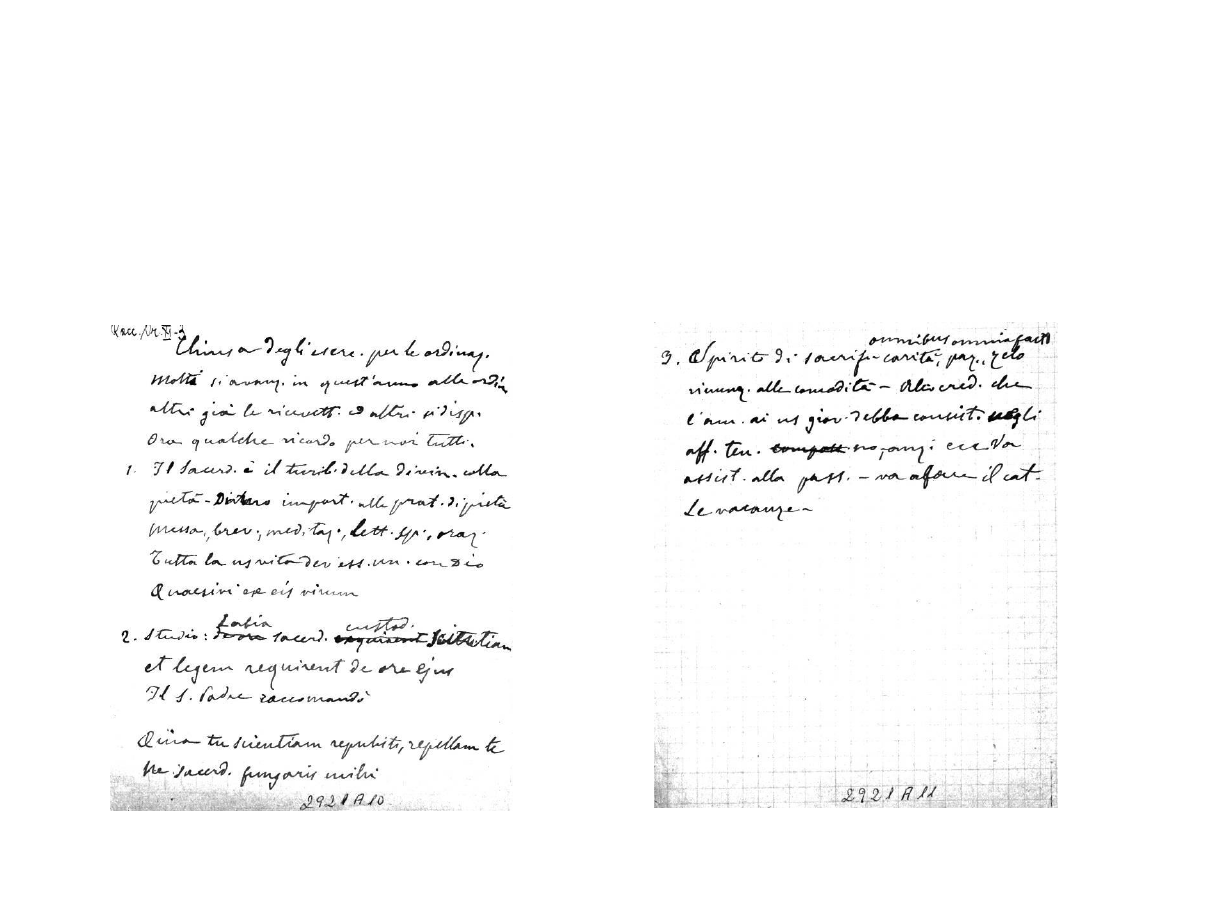 Racc./Nr. XI-3
Chiusa degli eserc. per le ordinaz.
Molti si avanz. in quest'anno alle ordin
altri già le ricevett. ed altri si disp.
Ora qualche ricordo per noi tutti.
1. Il Sacerd. è il turib. della divin. colla
pietà - import. alle prat. di pietà
messa, brev., meditaz., lett. sp., oraz.
Tutta la ns vita dev'ess. un. con Dio
Quaesivi ex eis virum
Labia custod.
2. Studio: de ore sacerd. exquirent scientiam
et legem requirent de ore ejus
Il S. Padre raccomandò
Quia tu scientiam repulisti, repellam te
ne sacerd. fungaris mihi
2921 A 10
omnibus omnia facti
3. Spirito di sacrif. carità, paz., zelo
rinunz. alle comodità - Altri cred. che
l'am. ai ns giov. debba consist. negli
aff. ten. no, anzi ecc Va
assist. alla pass. - va a fare il cat.
Le vacanze -
2921 A 11